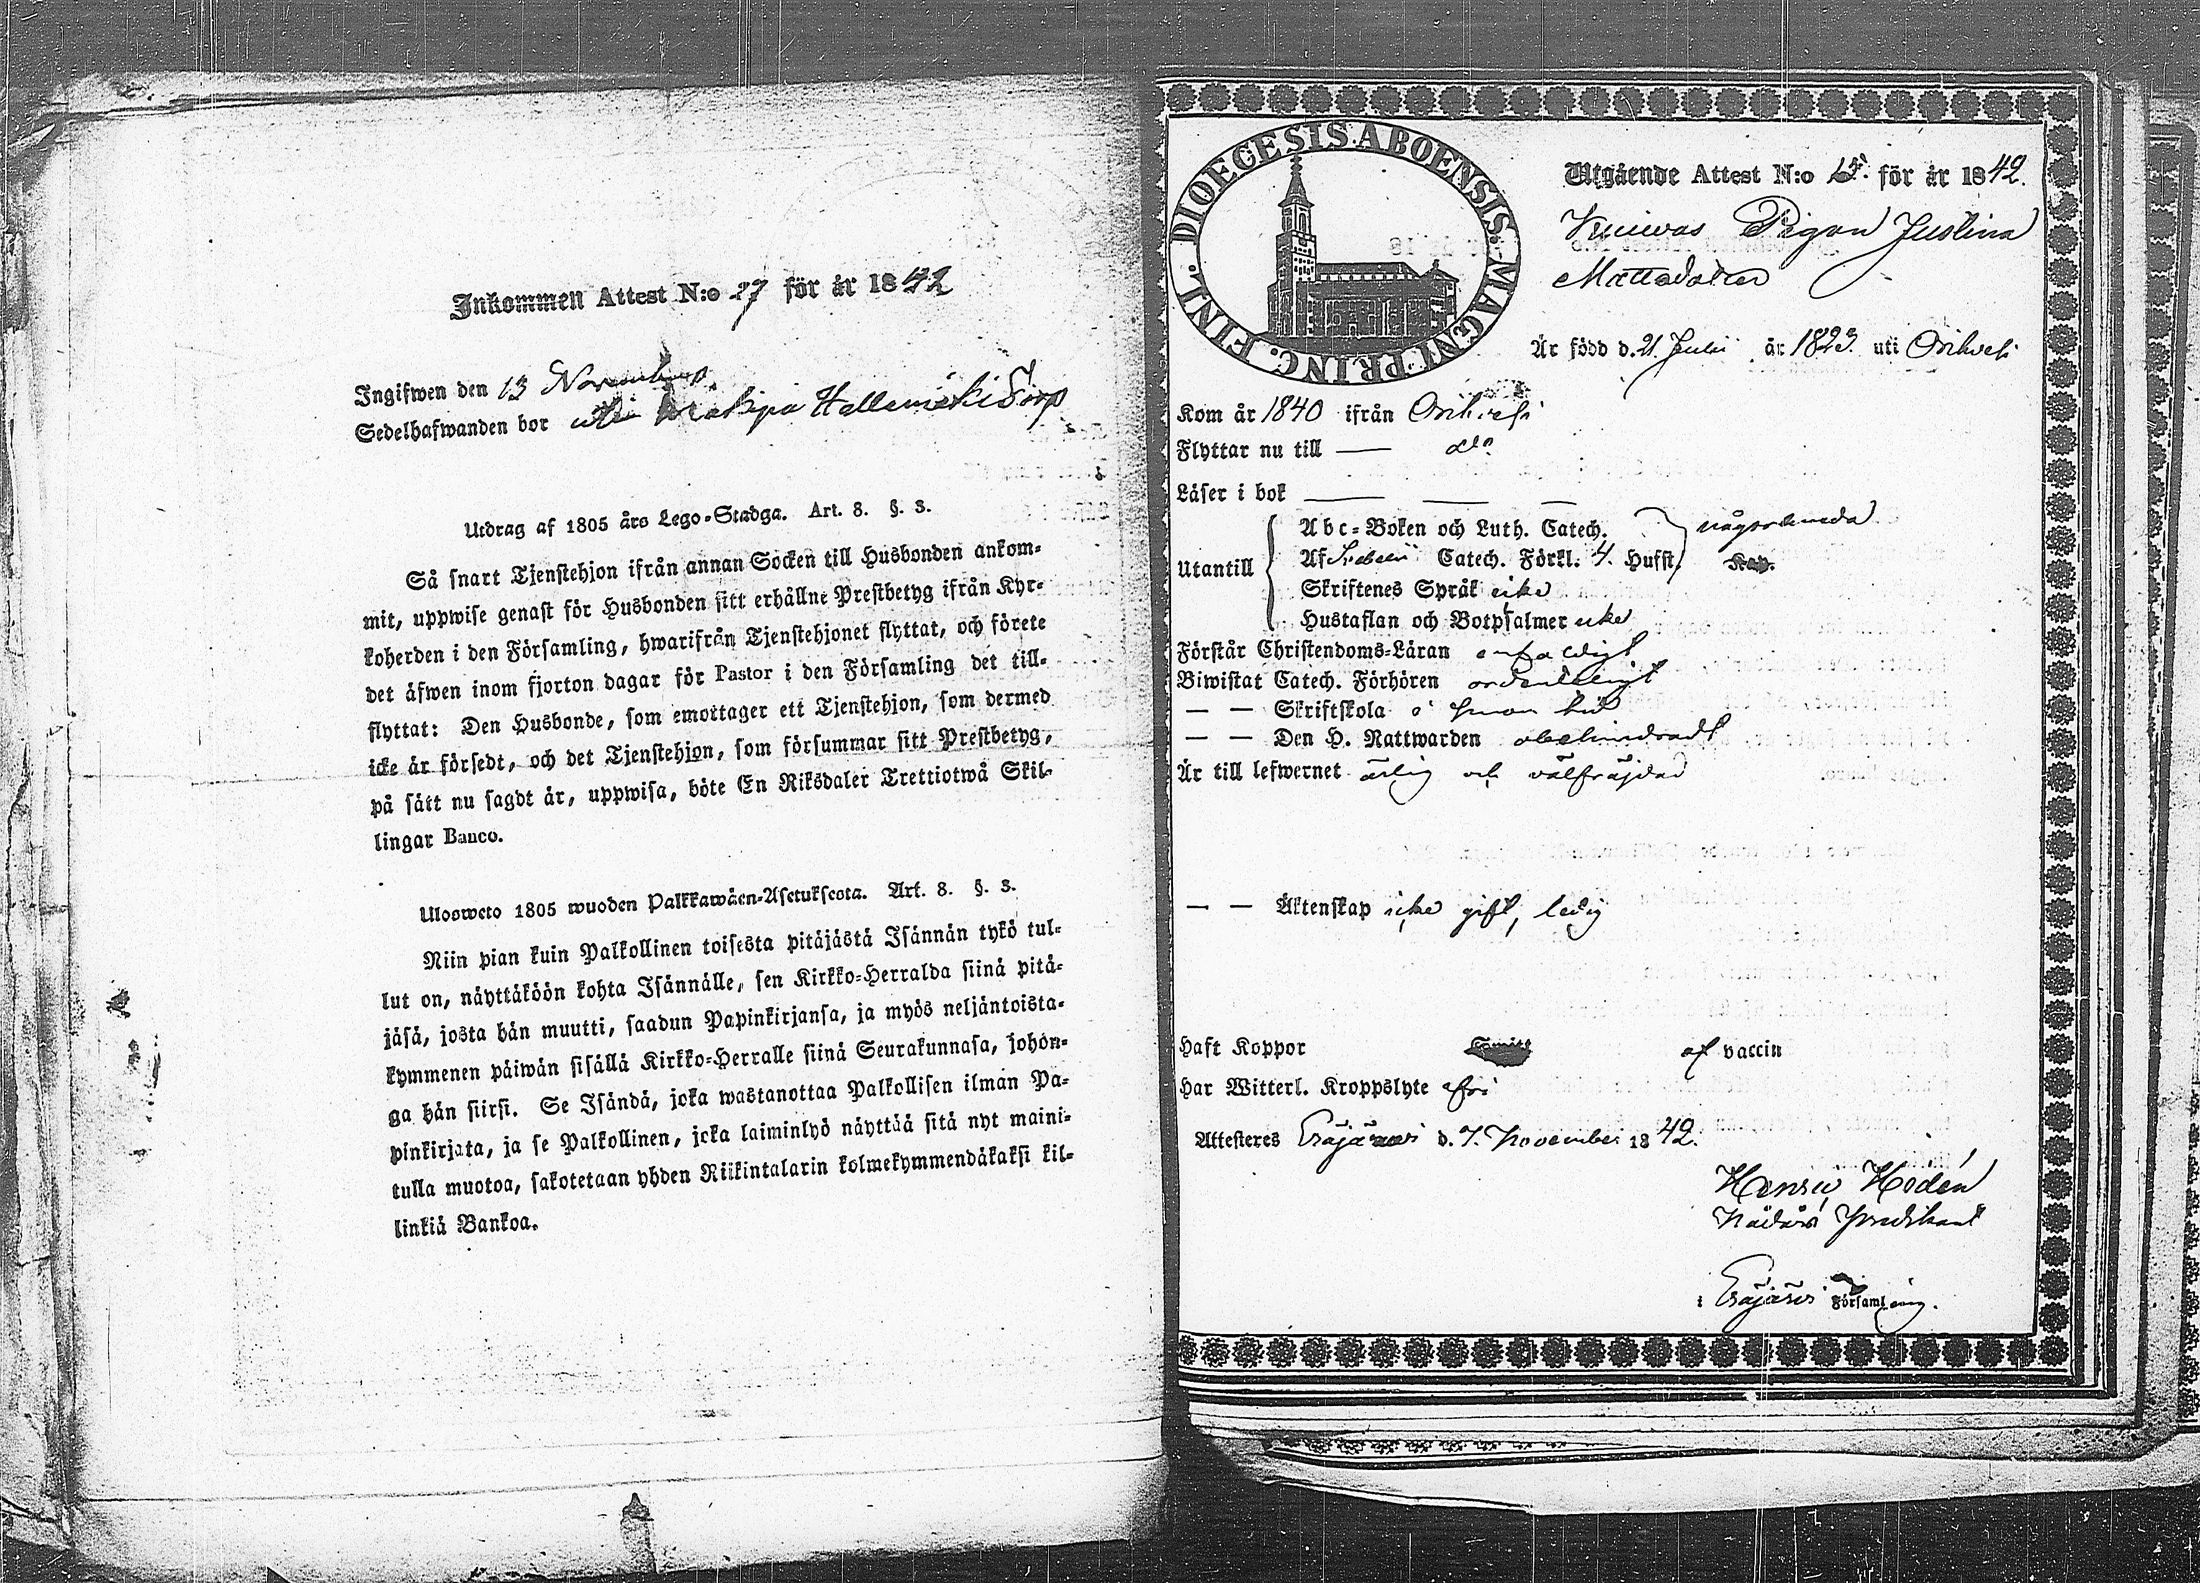 Inkommen Attest N:o 27 för år 1842
Ingifwen den 13 November
Sedelhafwanden bor uti Hallamäki Torp
Utdrag af 1805 års Lego-Stadga. Art. 8. §. 3.
Så snart Tjenstehjon ifrån annan Socken till Husbonden ankom-
mit, uppwise genast för Husbonden sitt erhållne Prestbetyg ifrån Kyr-
koherden i den Församling, hwarifrån Tjenstehjonet flyttat, och förete
det äfwen inom fjorton dagar för Pastor i den Församling det till-
flyttat: Den Husbonde, som emottager ett Tjenstehjon, som dermed
icke är försedt, och det Tjenstehjon, som försummar sitt Prestbetyg,
på sätt nu sagdt är, uppwisa, böte En Riksdaler Trettiotwå Skil-
lingar Banco.
Ulosweto 1805 wuoden Palkkawäen-Asetuksesta. Art. 8. §. 3.
Niin pian kuin Palkollinen toisesta pitäjästä Isännän tykö tul-
lut on, näyttäköön kohta Isännälle, sen Kirkko-Herralda siinä pitä-
jäsä, josta hän muutti, saadun Papinkirjansa, ja myös neljäntoista-
kymmenen päiwän sisällä Kirkko-Herralle siinä Seurakunnasa, johon-
ga hän siirsi. Se Isändä, joka wastanottaa Palkollisen ilman Pa-
pinkirjata, ja se Palkollinen, joka laiminlyö näyttää sitä nyt maini-
tulla muotoa, sakotetaan yhden Riikintalarin kolmekymmendäkaksi kil-
linkiä Bankoa.
DIOECESIS ABOENSIS MAGNI PRINC. FINL.
Utgående Attest N:o 15. för år 1842.
Pigan Justina
Mattsdotter
Är född d. 21 Julii år 1823. uti Orihvesi
Kom år 1840 ifrån Orihvesi
Flyttar nu till — do
Läser i bok — — —
Utantill
Abc-Boken och Luth. Catech. någorlunda
Af Svebelii Catech. Förkl. 4. Hufst.
Skriftenes Språk icke
Hustaflan och Botpsalmer icke
Förstår Christendoms-Läran enfaldigt
Biwistat Catech. Förhören ordentligt
— — Skriftskola i sinom tid
— — Den H. Nattwarden obehindradt
Är till lefwernet ärlig och välfräjdad
— — Äktenskap icke gift, ledig
Haft Koppor af vaccin
Har Witterl. Kroppslyte fri
Attesteres Eräjärvi d. 7. November 1842.
Henric Hodén
Nådårs Predikant
i Eräjärvi Församling.